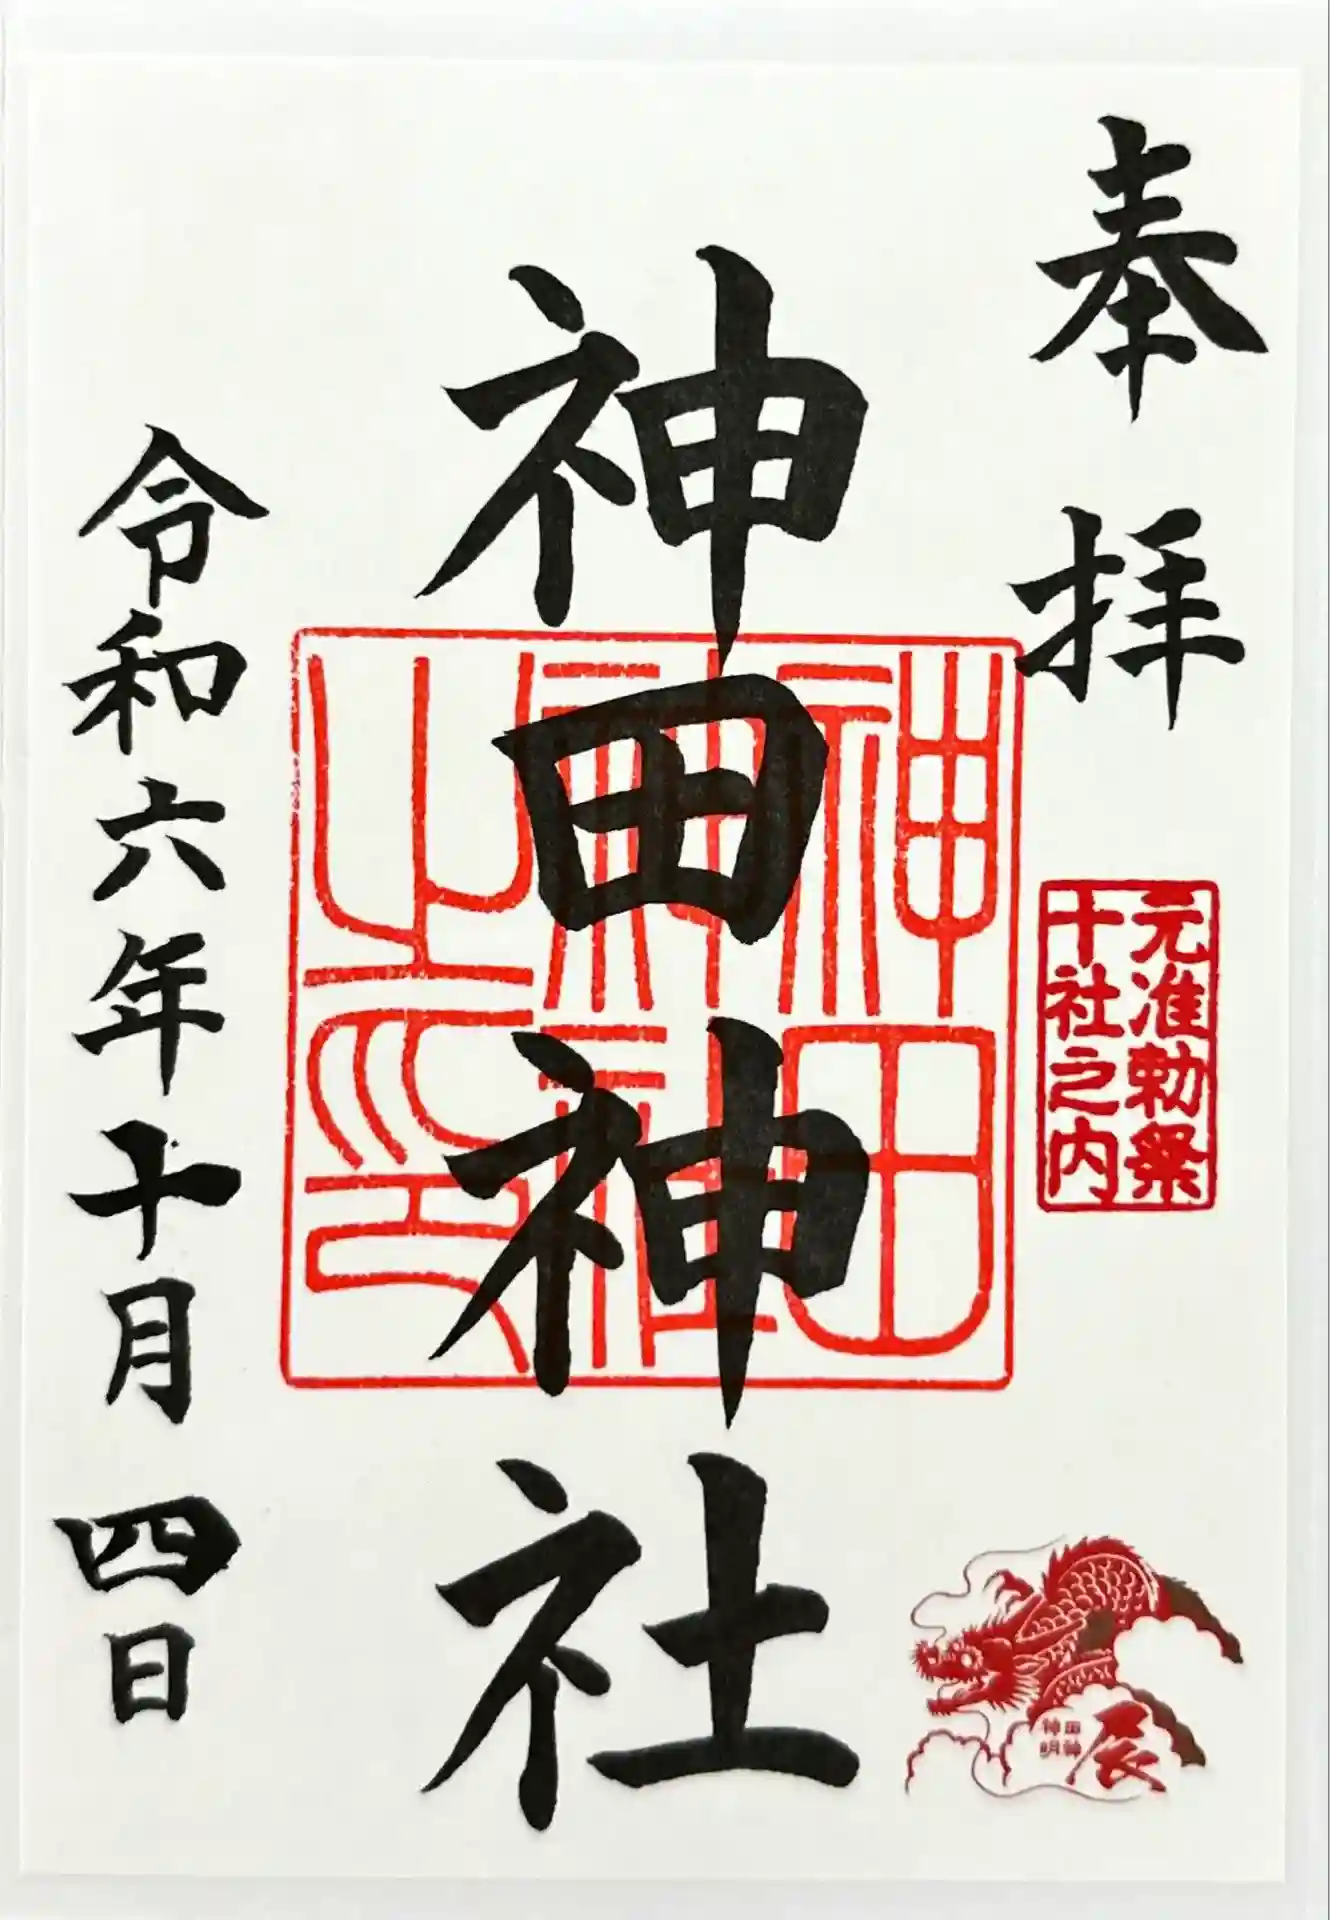 奉拝
元准勅祭
十社之内
辰
神田神社
神田
神社
之印
令和六年十月四日